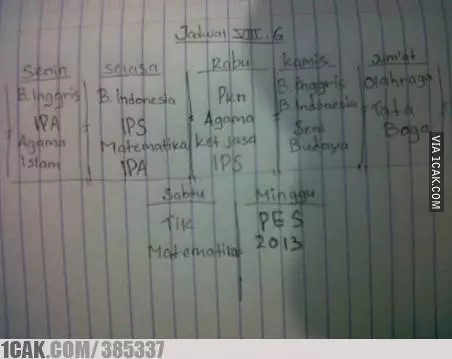 Jadwal VIII.6
Senin
B. Inggris
IPA
Agama
Islam
Selasa
B. Indonesia
IPS
Matematika
IPA
Rabu
Pkn
Agama
Ket Jasa
IPS
Kamis
B. Inggris
B. Indonesia
Seni
Budaya
Jum'at
Olahraga
Tata
Boga
Sabtu
Tik
Matematika
Minggu
PES
2013
VIA 1CAK.COM
1CAK.COM/385337